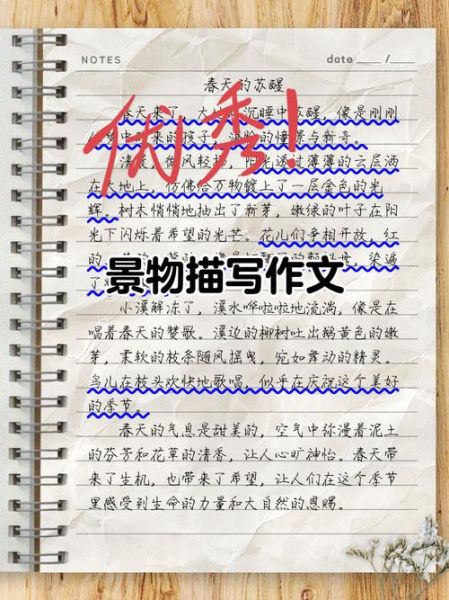 NOTES
date ____ /____
春天的苏醒
春天来了，大地从沉睡中苏醒，像是刚刚
从梦中醒来的孩子，满脸的憧憬与新奇。
清晨，微风轻拂，阳光透过薄薄的云层洒
在大地上，仿佛给万物镀上了一层金色的光
辉。树木悄悄地抽出了新芽，嫩绿的叶子在阳
光下闪烁着希望的光芒。花儿们争相开放，红
的
染遍
了
优秀！
景物描写作文
小溪解冻了，溪水哗啦啦地流淌，像是在
唱着春天的赞歌。溪边的柳树吐出鹅黄色的嫩
芽，柔软的枝条随风摇曳，宛如舞动的精灵。
鸟儿在枝头欢快地歌唱，似乎在庆祝这个美好
的季节。
春天的气息是甜美的，空气中弥漫着泥土
的芬芳和花草的清香，让人心旷神怡。春天带
来了生机，也带来了希望，让人们在这个季节
里感受到生命的力量和大自然的恩赐。